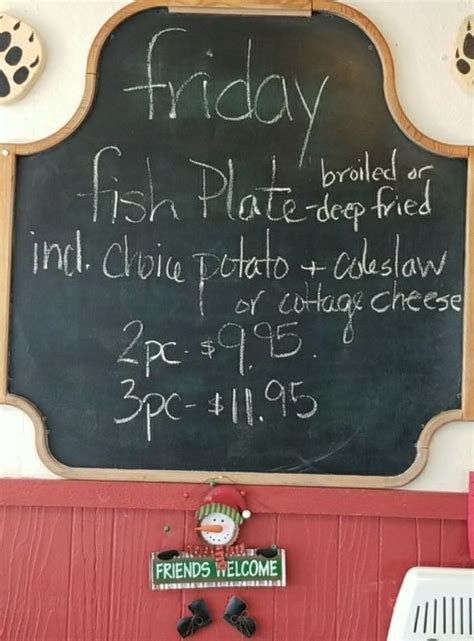 friday
fish Plate - broiled or
deep fried
incl. choice potato + coleslaw
or cottage cheese
2pc - $9.95.
3pc - $11.95
FRIENDS WELCOME